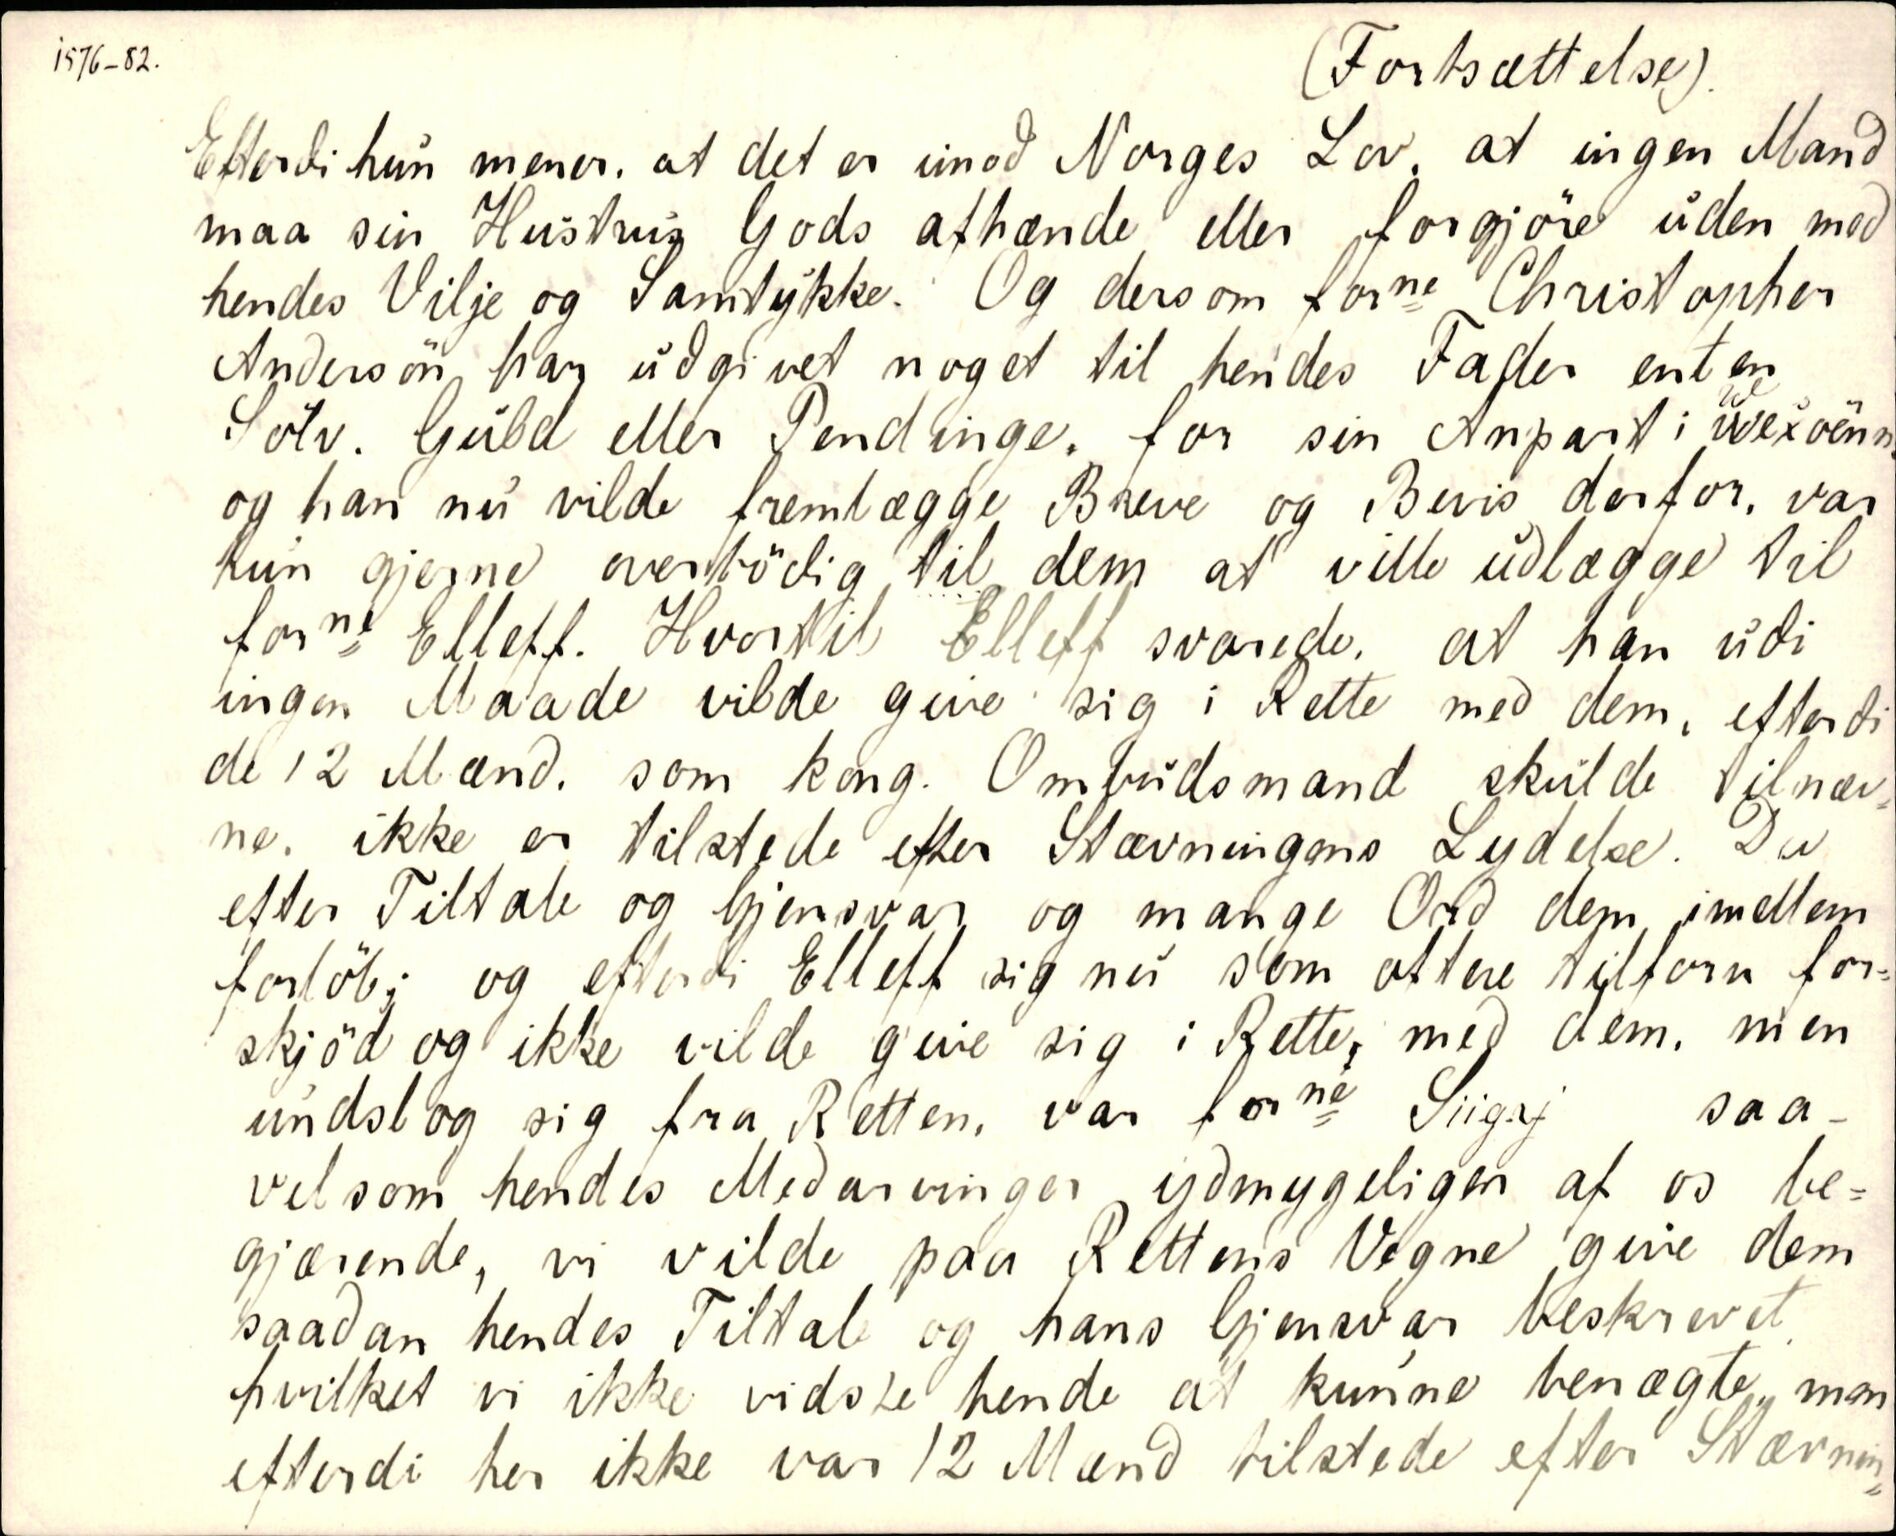 1576-82.
(Fortsættelse).
Efterdi hun mener, at det er imod Norges Lov, at ingen Mand
maa sin Hustrus Gods afhænde eller forgjöre uden med
hendes Vilje og Samtykke. Og dersom forne Christopher
Andersön har udgivet noget til hendes Fader enten
Sölv, Guld eller Pendinge, for sin Anpart i Wexöenn,
og han nu vilde fremlægge Breve og Bevis derfor, var
hun gjerne overbödig til dem at ville udlægge til
forne Elleff. Hvortil Elleff svarede, at han udi
ingen Maade vilde give sig i Rette med dem, efterdi
de 12 Mænd, som kong. Ombudsmand skulde tilnæv=
ne, ikke er tilstede efter Stævningens Lydelse. Da
efter Tiltale og Gjensvar og mange Ord dem imellem
forlöb; og efterdi Elleff sig nu som oftere tilforn for=
skjöd og ikke vilde give sig i Rette, med dem, men
undslog sig fra Retten, var forne Siigrj saa-
velsom hendes Medarvinger ydmygeligen af os be=
gjærende, vi vilde paa Rettens Vegne give dem
saadan hendes Tiltale og hans Gjensvar beskrevet,
hvilket vi ikke vidste hende at kunne benægte, men
efterdi her ikke var 12 Mænd tilstede efter Stævnin=